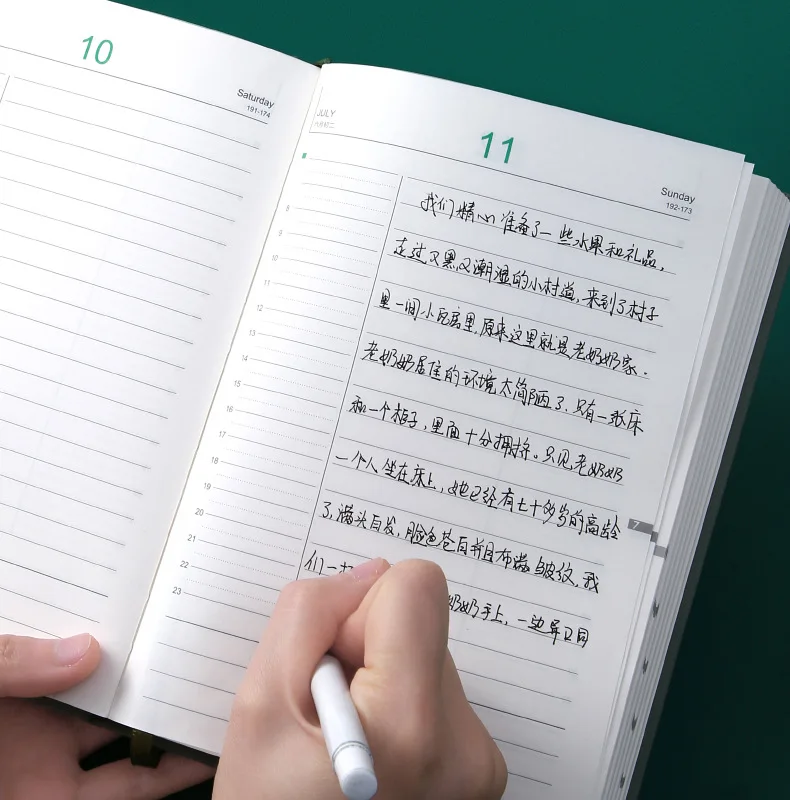 10
Saturday
191-174
JULY
11
Sunday
192-173
8
9
10
11
12
13
14
15
16
17
18
19
20
21
22
23
我们精心准备了一些水果和礼品,
走过又黑又潮湿的小村道,来到了村子
里一间小瓦房里,原来这里就是老奶奶家.
老奶奶居住的环境太简陋了.只有一张床
和一个柜子,里面十分拥挤。只见老奶奶
一个人坐在床上,她已经有七十多岁的高龄
了,满头白发,脸色苍白并且布满皱纹,我
们一
奶奶手上,一边异口同
7